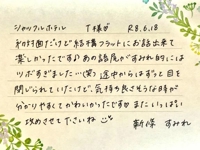 シャングルホテル T様が R8.6.18
初対面だけど結構フラットにお話出来て
楽しかったですね あの語尾がすみれ的には
ツボすぎました…(笑) 途中からはずっと目を
閉じられていたけど、気持ち良さそうな時が
分かりやすくてかわいかったですね またいっぱい
攻めさせてくださいね
新條 すみれ